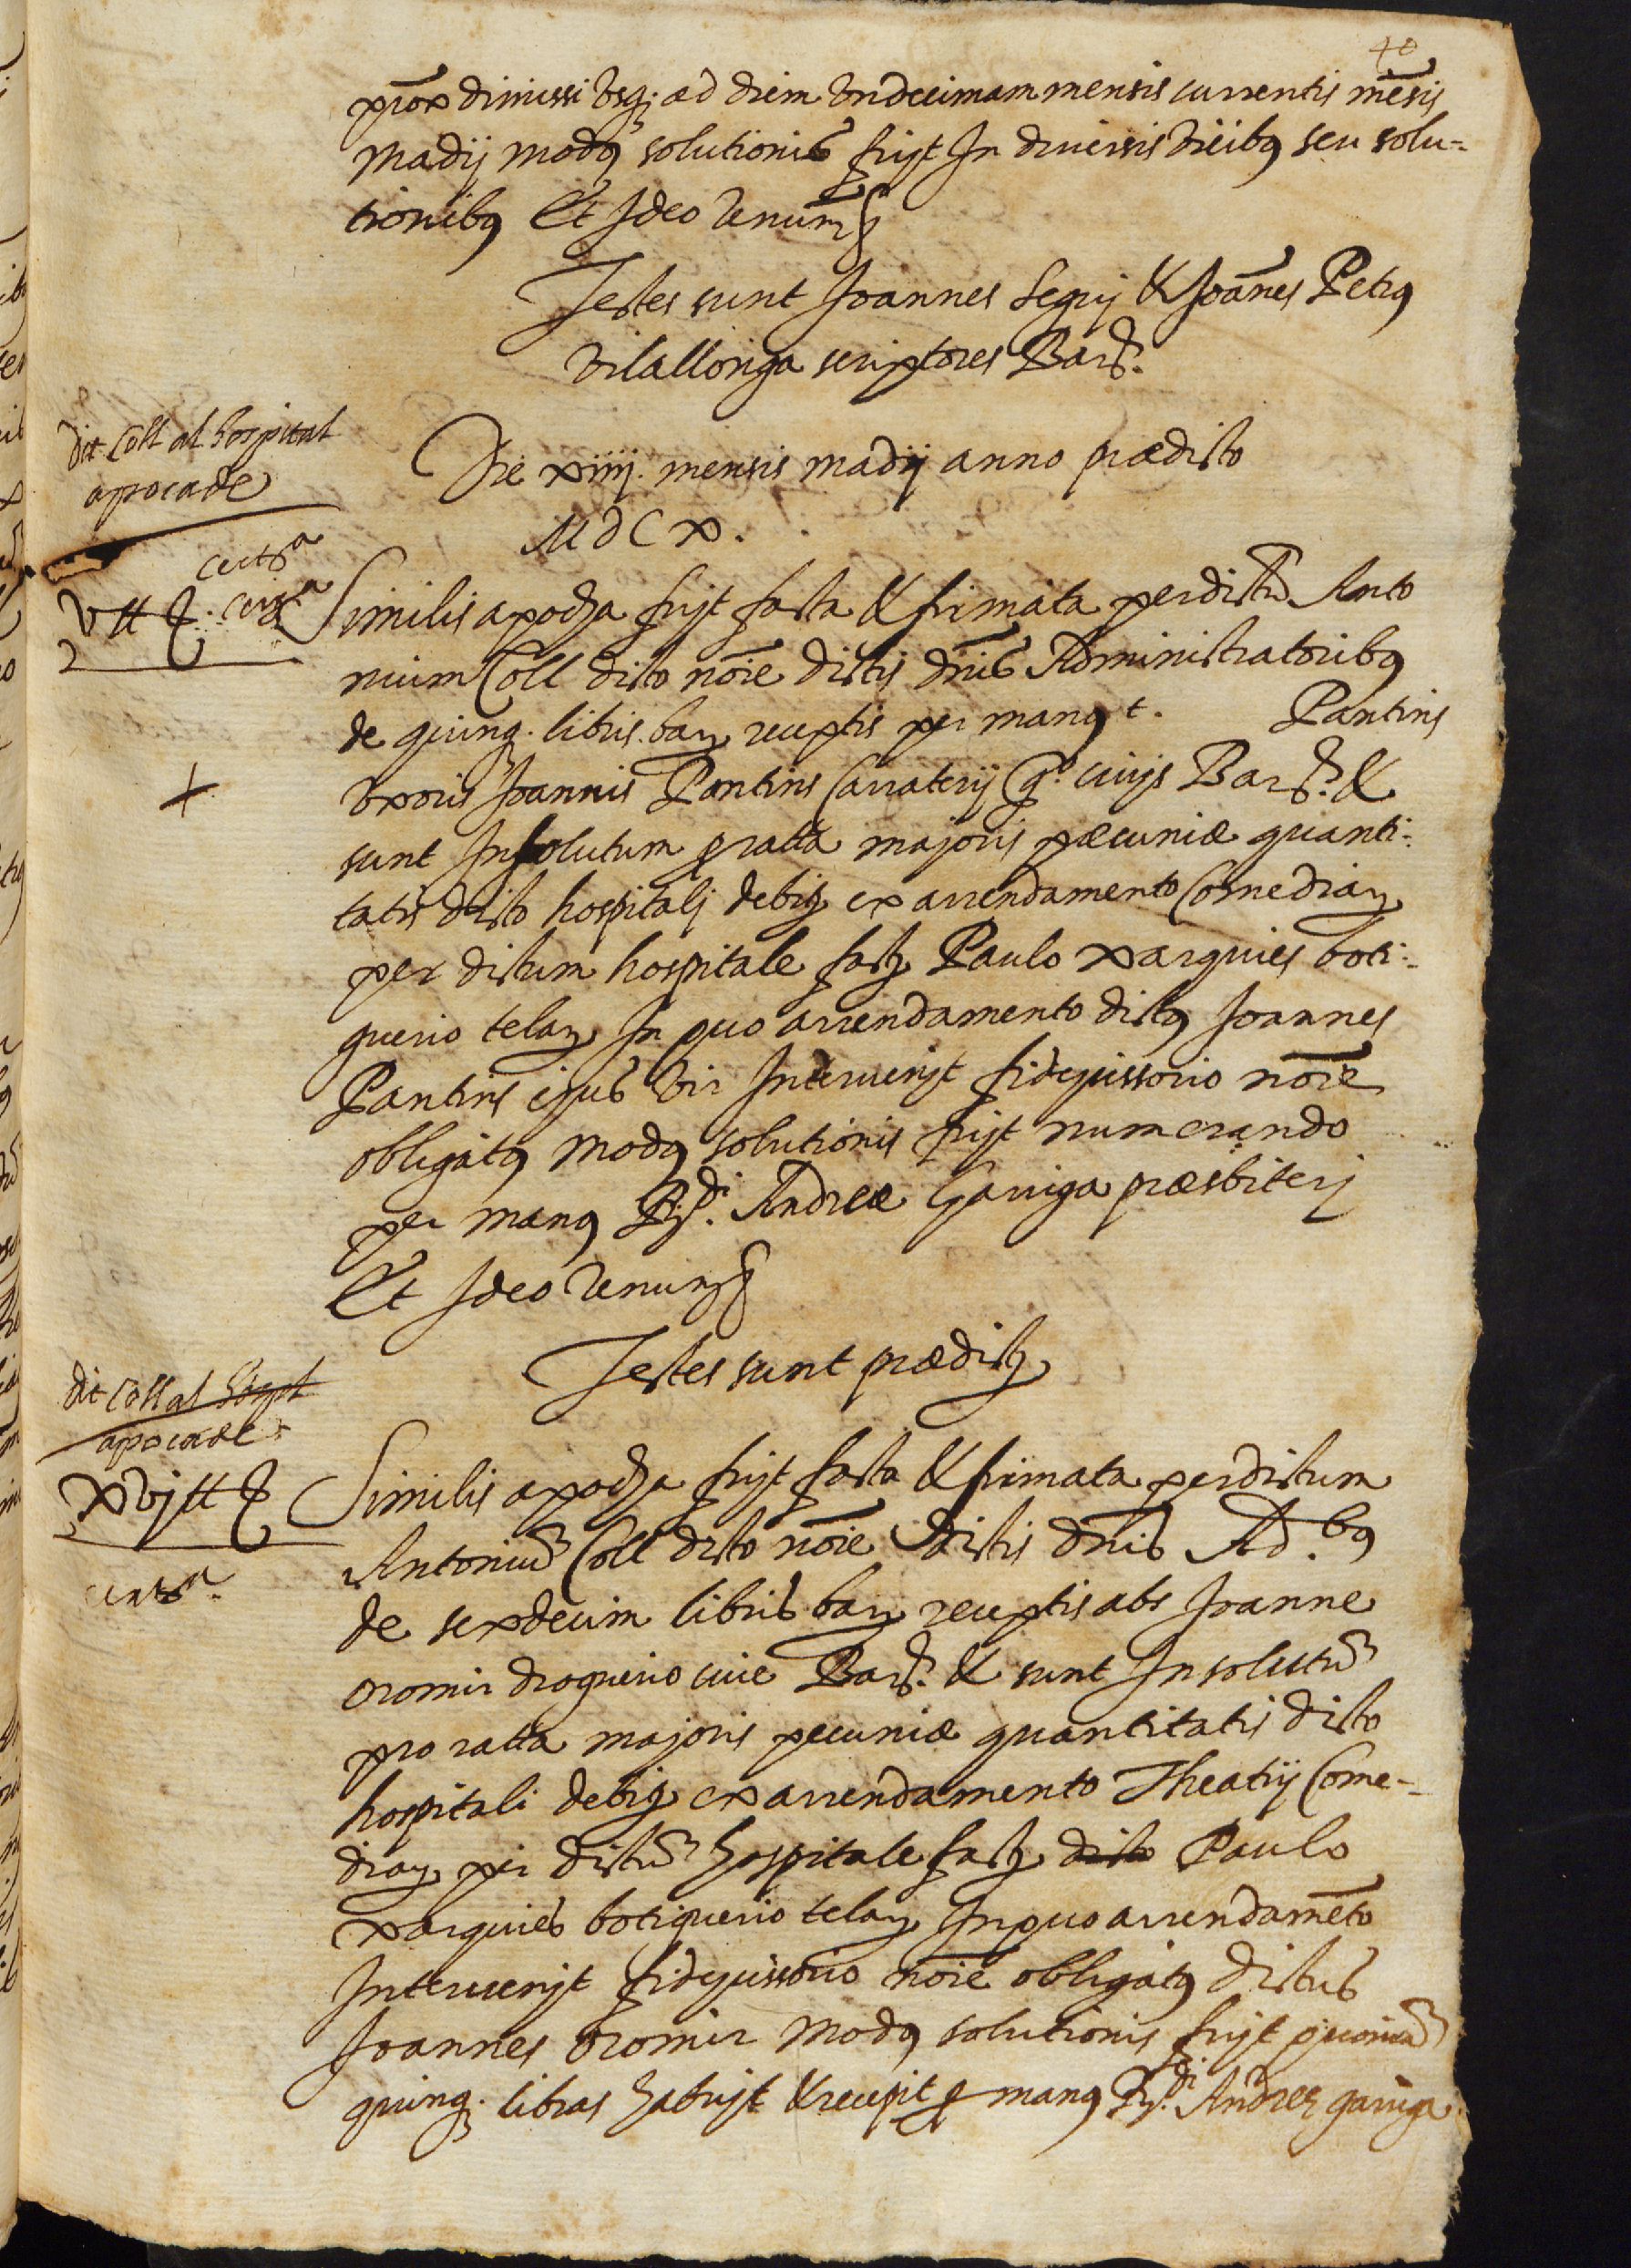 40
prox dimissi usq; ad diem undecimam mensis currentis mēsis
Madij modus solutionis fuit In diversis dieibus seu solu-
tionibus Et Ideo Renun
Testes sunt Joannes Segui & Joānes Petrus
Vilallonga scriptores Bar
dit Coll al hospital
apoca de
Die xiiij. mensis madij anno prædicto
MDCx.
certª
v ll
Similis apocha fuit facta & firmata per dictū Anto
nium Coll dicto nōie dictis dnis Administratoribus
de quinq. libris bar receptis per manus t. Pantins
uxoris Joannis Pantins Carraterij q. civis Bar &
sunt In solutum pratta majoris pecuniæ quanti-
tatis dicto hospitali debitæ ex arrendamento Comediar
per dictum hospitale facto Paulo xarquies boti-
guerio telar In quo arrendamento dictus Joannes
Pantins ejus vir Intervenit fidejussorio nōie
obligatus modus solutionis fuit numerando
per manus Rdi. Andreæ Garriga præsbiterj
Et Ideo Renun
Testes sunt prædicti
dit Coll al hospl
apoca de
xvj ll
Similis apocha fuit facta & firmata per dictum
Antoniū Coll dicto nōie dictis dnis Ad.bus
de sexdecim libris bar receptis abs Joanne
oromir droguerio cive Bar & sunt In solutū
pro ratta majoris pecuniæ quantitatis dicto
hospitali debitæ ex arrendamento Theatrij Come-
diar per dictū hospitale facto dicto Paulo
xarquies botiguerio telar In quo arrendamēto
Intervenit fidejussorio nōie obligatus dictus
Joannes oromir modus solutionis fuit quoniā
quinq. libras habuit & recepit p manus Rdi. Andreæ garriga